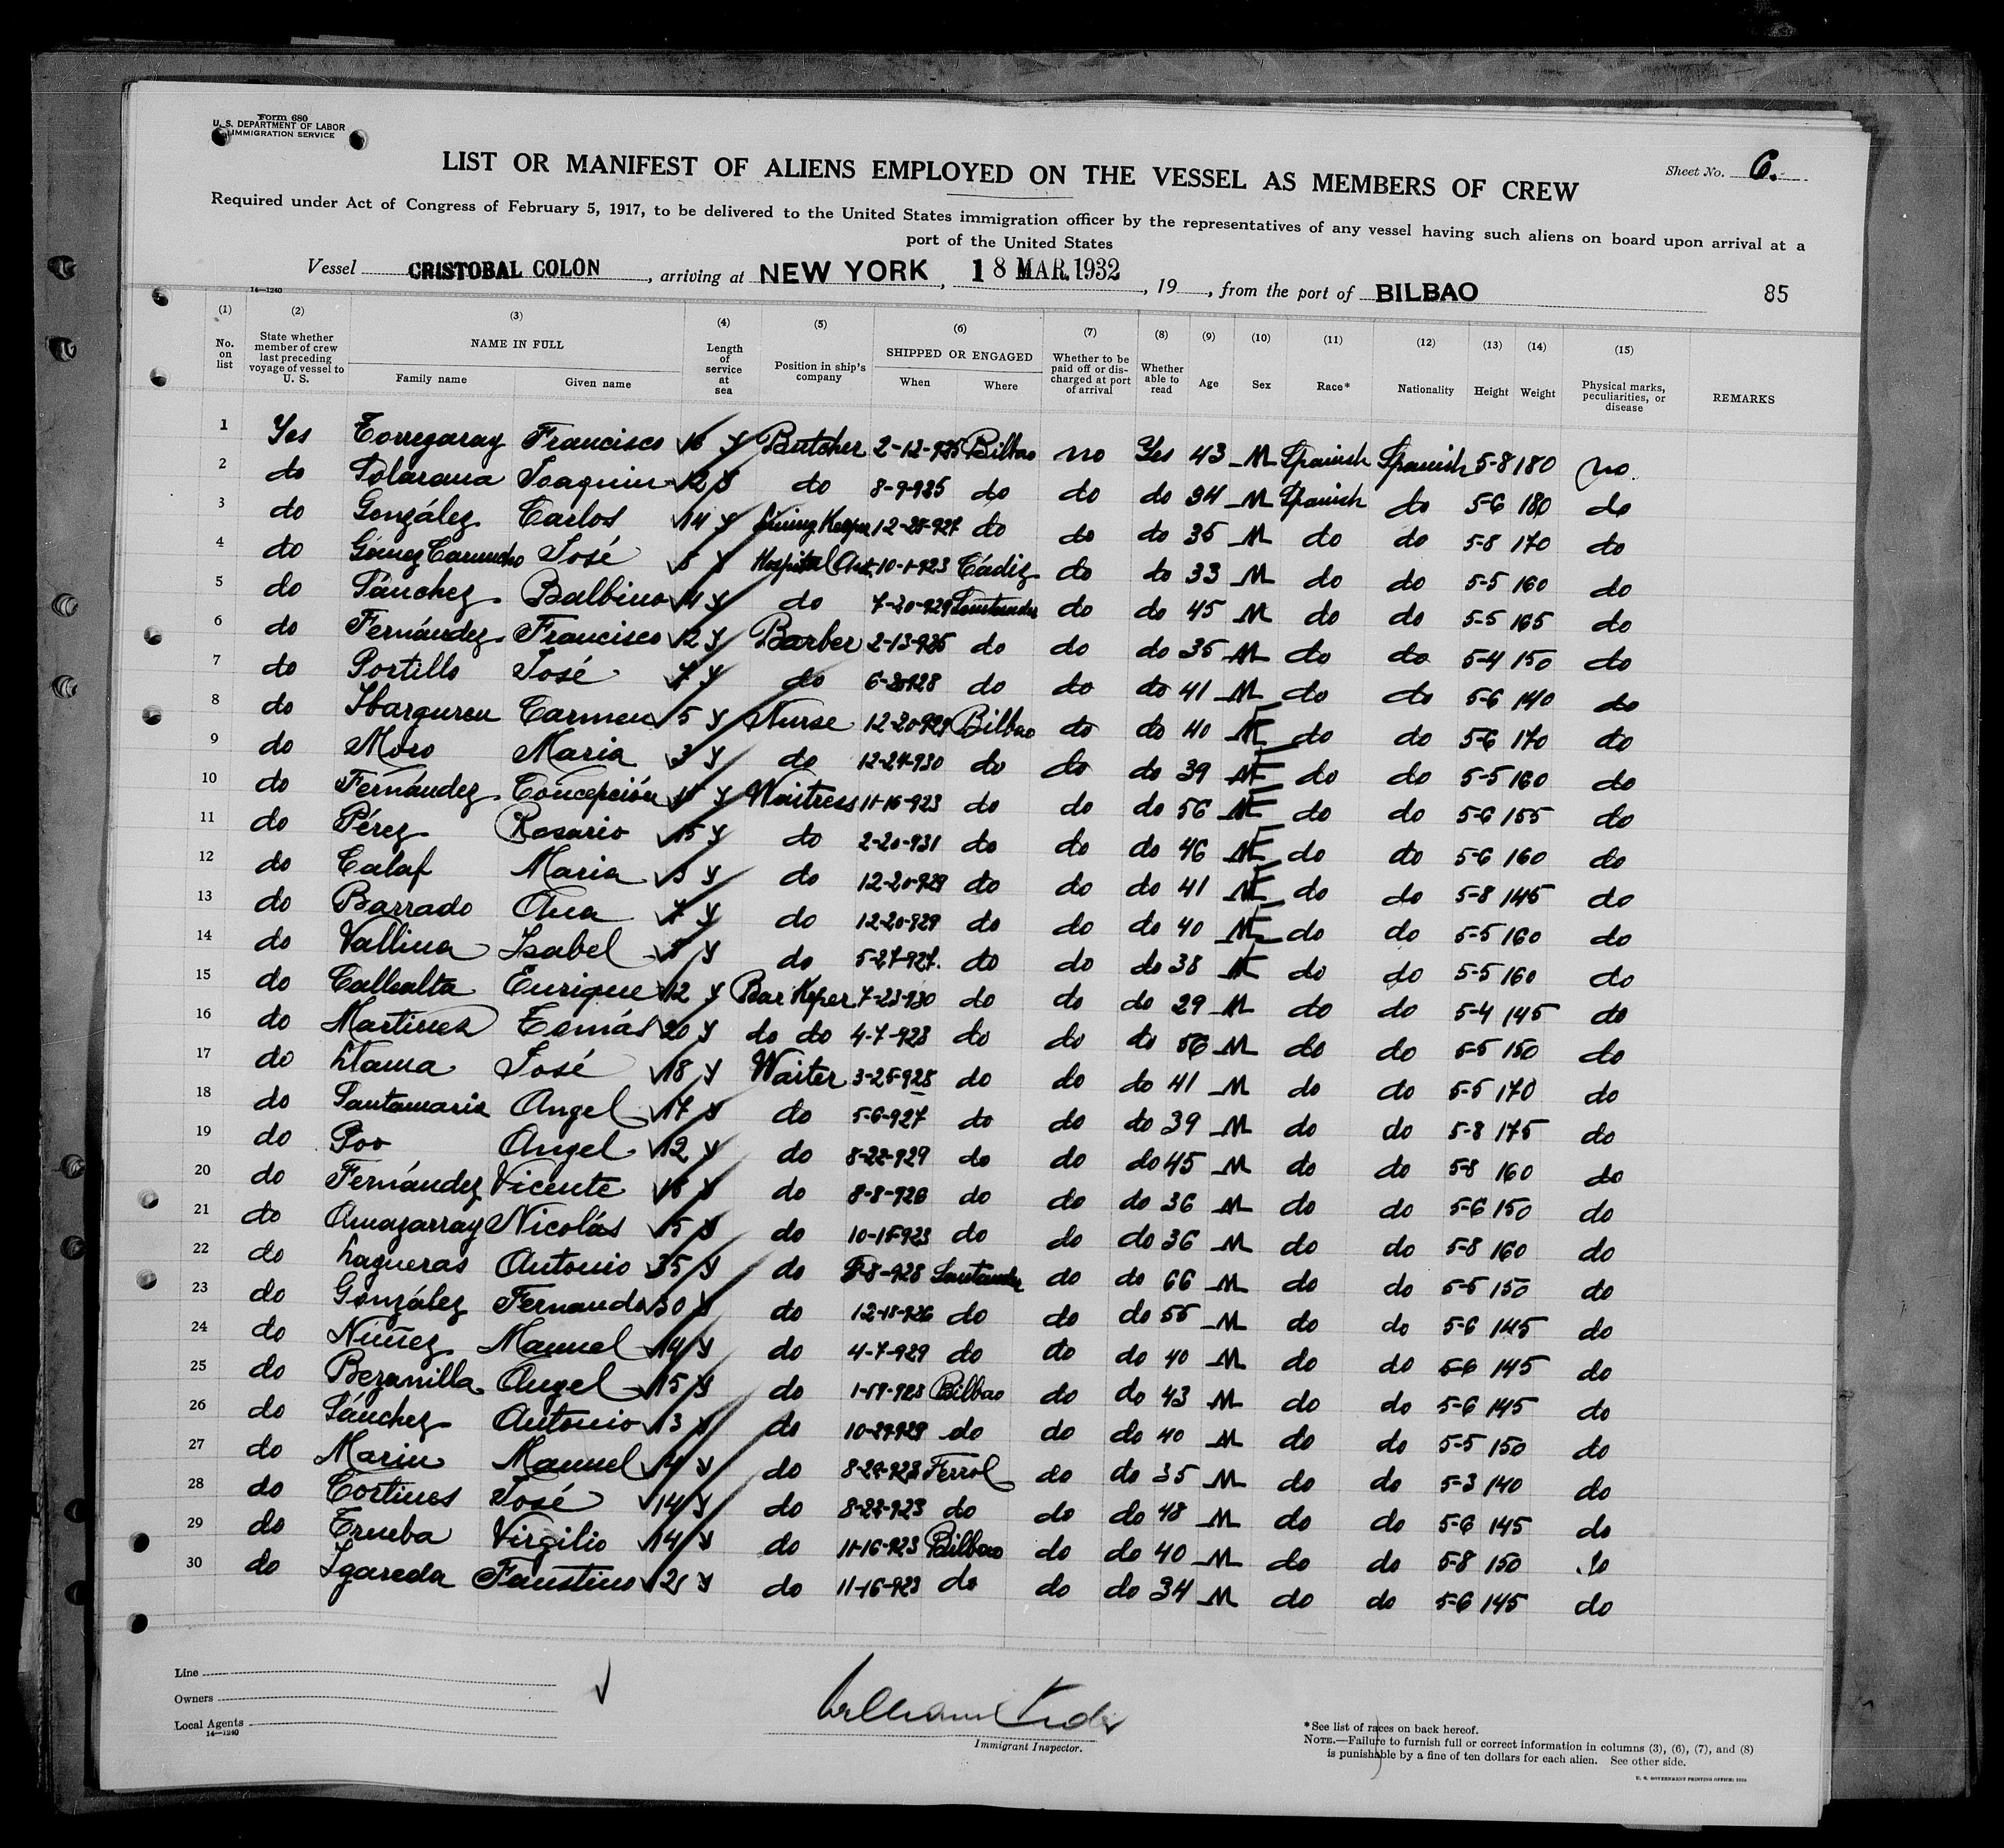 Form 680
U. S. DEPARTMENT OF LABOR
IMMIGRATION SERVICE
Sheet No. 6.
LIST OR MANIFEST OF ALIENS EMPLOYED ON THE VESSEL AS MEMBERS OF CREW
Required under Act of Congress of February 5, 1917, to be delivered to the United States immigration officer by the representatives of any vessel having such aliens on board upon arrival at a
port of the United States
Vessel CRISTOBAL COLON, arriving at NEW YORK, 18 MAR. 1932, 19, from the port of BILBAO 85
14—1240
(1) (2) (3) (4) (5) (6) (7) (8) (9) (10) (11) (12) (13) (14) (15)
No. on list State whether member of crew last preceding voyage of vessel to U. S. NAME IN FULL Family name Given name Length of service at sea Position in ship's company SHIPPED OR ENGAGED When Where Whether to be paid off or discharged at port of arrival Whether able to read Age Sex Race* Nationality Height Weight Physical marks, peculiarities, or disease REMARKS
1 Yes Torregaray Francisco 16 y Butcher 2-12-925 Bilbao no Yes 43 M Spanish Spanish 5-8 180 no
2 do Solarana Joaquin 12 y do 8-9-925 do do do 34 M Spanish do 5-6 180 do
3 do González Carlos 14 y 12-28-927 do do do 35 M do do 5-8 170 do
4 do Gómez Camacho José 5 y Hospital 10-1-923 Cádiz do do 33 M do do 5-5 160 do
5 do Sánchez Balbino 14 y do 7-20-929 Santander do do 45 M do do 5-5 165 do
6 do Fernández Francisco 12 y Barber 2-13-925 do do do 35 M do do 5-4 150 do
7 do Portillo José 7 y do 6-20-928 do do do 41 M do do 5-6 140 do
8 do Ibarguren Carmen 5 y Nurse 12-20-929 Bilbao do do 40 F do do 5-6 170 do
9 do Moro Maria 3 y do 12-24-930 do do do 39 F do do 5-5 160 do
10 do Fernández Concepción 15 y Waitress 11-16-923 do do do 56 F do do 5-6 155 do
11 do Pérez Rosario 15 y do 2-20-931 do do do 46 F do do 5-6 160 do
12 do Calaf Maria 3 y do 12-20-929 do do do 41 F do do 5-8 145 do
13 do Barrado Ana 7 y do 12-20-929 do do do 40 F do do 5-5 160 do
14 do Vallina Isabel 5 y do 5-27-927 do do do 38 F do do 5-5 160 do
15 do Callealta Enrique 12 y Bar Keper 7-23-930 do do do 29 M do do 5-4 145 do
16 do Martinez Tomás 20 y do do 4-7-923 do do do 56 M do do 5-5 150 do
17 do Llama José 18 y Waiter 3-25-925 do do do 41 M do do 5-5 170 do
18 do Santamaria Angel 17 y do 5-6-927 do do do 39 M do do 5-8 175 do
19 do Poo Angel 12 y do 8-22-929 do do do 45 M do do 5-8 160 do
20 do Fernández Vicente 16 y do 8-8-926 do do do 36 M do do 5-6 150 do
21 do Amazarray Nicolás 15 y do 10-15-923 do do do 36 M do do 5-8 160 do
22 do Lagueras Antonio 35 y do 8-928 Santander do do 66 M do do 5-5 150 do
23 do González Fernando 30 y do 12-18-926 do do do 55 M do do 5-6 145 do
24 do Nuñez Manuel 14 y do 4-7-929 do do do 40 M do do 5-6 145 do
25 do Bezanilla Angel 15 y do 1-19-923 Bilbao do do 43 M do do 5-6 145 do
26 do Sánchez Antonio 13 y do 10-29-929 do do do 40 M do do 5-5 150 do
27 do Marin Manuel 14 y do 8-22-923 Ferrol do do 35 M do do 5-3 140 do
28 do Cortines José 14 y do 8-22-923 do do do 48 M do do 5-6 145 do
29 do Trueba Virgilio 14 y do 11-16-923 Bilbao do do 40 M do do 5-8 150 do
30 do Igareda Faustino 21 y do 11-16-923 do do do 34 M do do 5-6 145 do
Line
Owners
Local Agents
14—1240
William
Immigrant Inspector.
*See list of races on back hereof.
NOTE.—Failure to furnish full or correct information in columns (3), (6), (7), and (8)
is punishable by a fine of ten dollars for each alien. See other side.
U. S. GOVERNMENT PRINTING OFFICE: